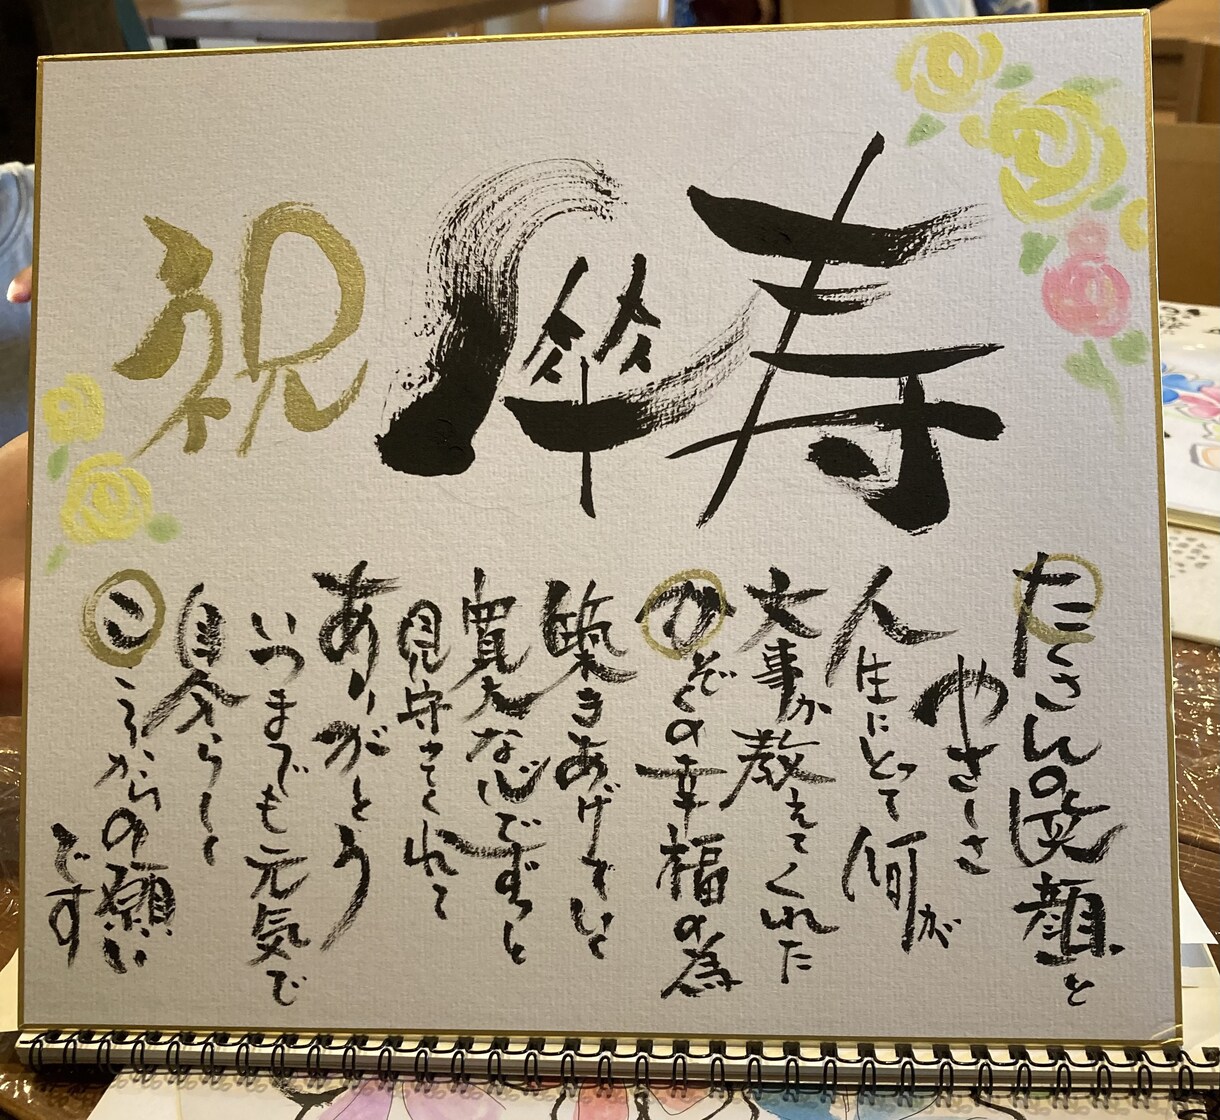 祝 傘寿
たくさんの笑顔と
やさしさ
人生にとって何が
大事か教えてくれた
かぞくの幸福の為
築きあげていく
寛大な心でずっと
見守ってくれて
ありがとう
いつまでも元気で
自分らしく
こころからの願い
です